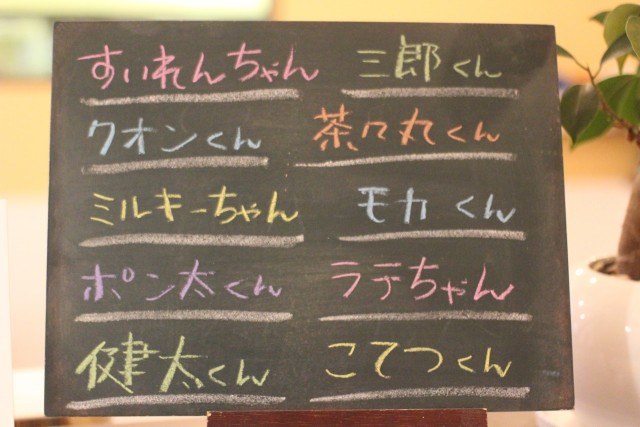 すいれんちゃん
三郎くん
クオンくん
茶々丸くん
ミルキーちゃん
モカくん
ポン太くん
ラテちゃん
健太くん
こてつくん